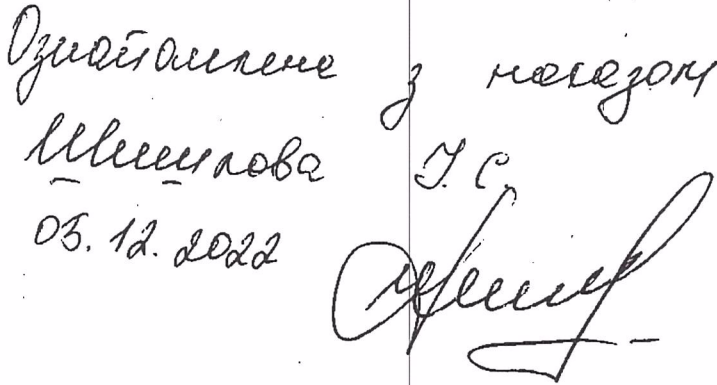 Ознайомлена з наказом
Шишлова І. С.
05.12.2022